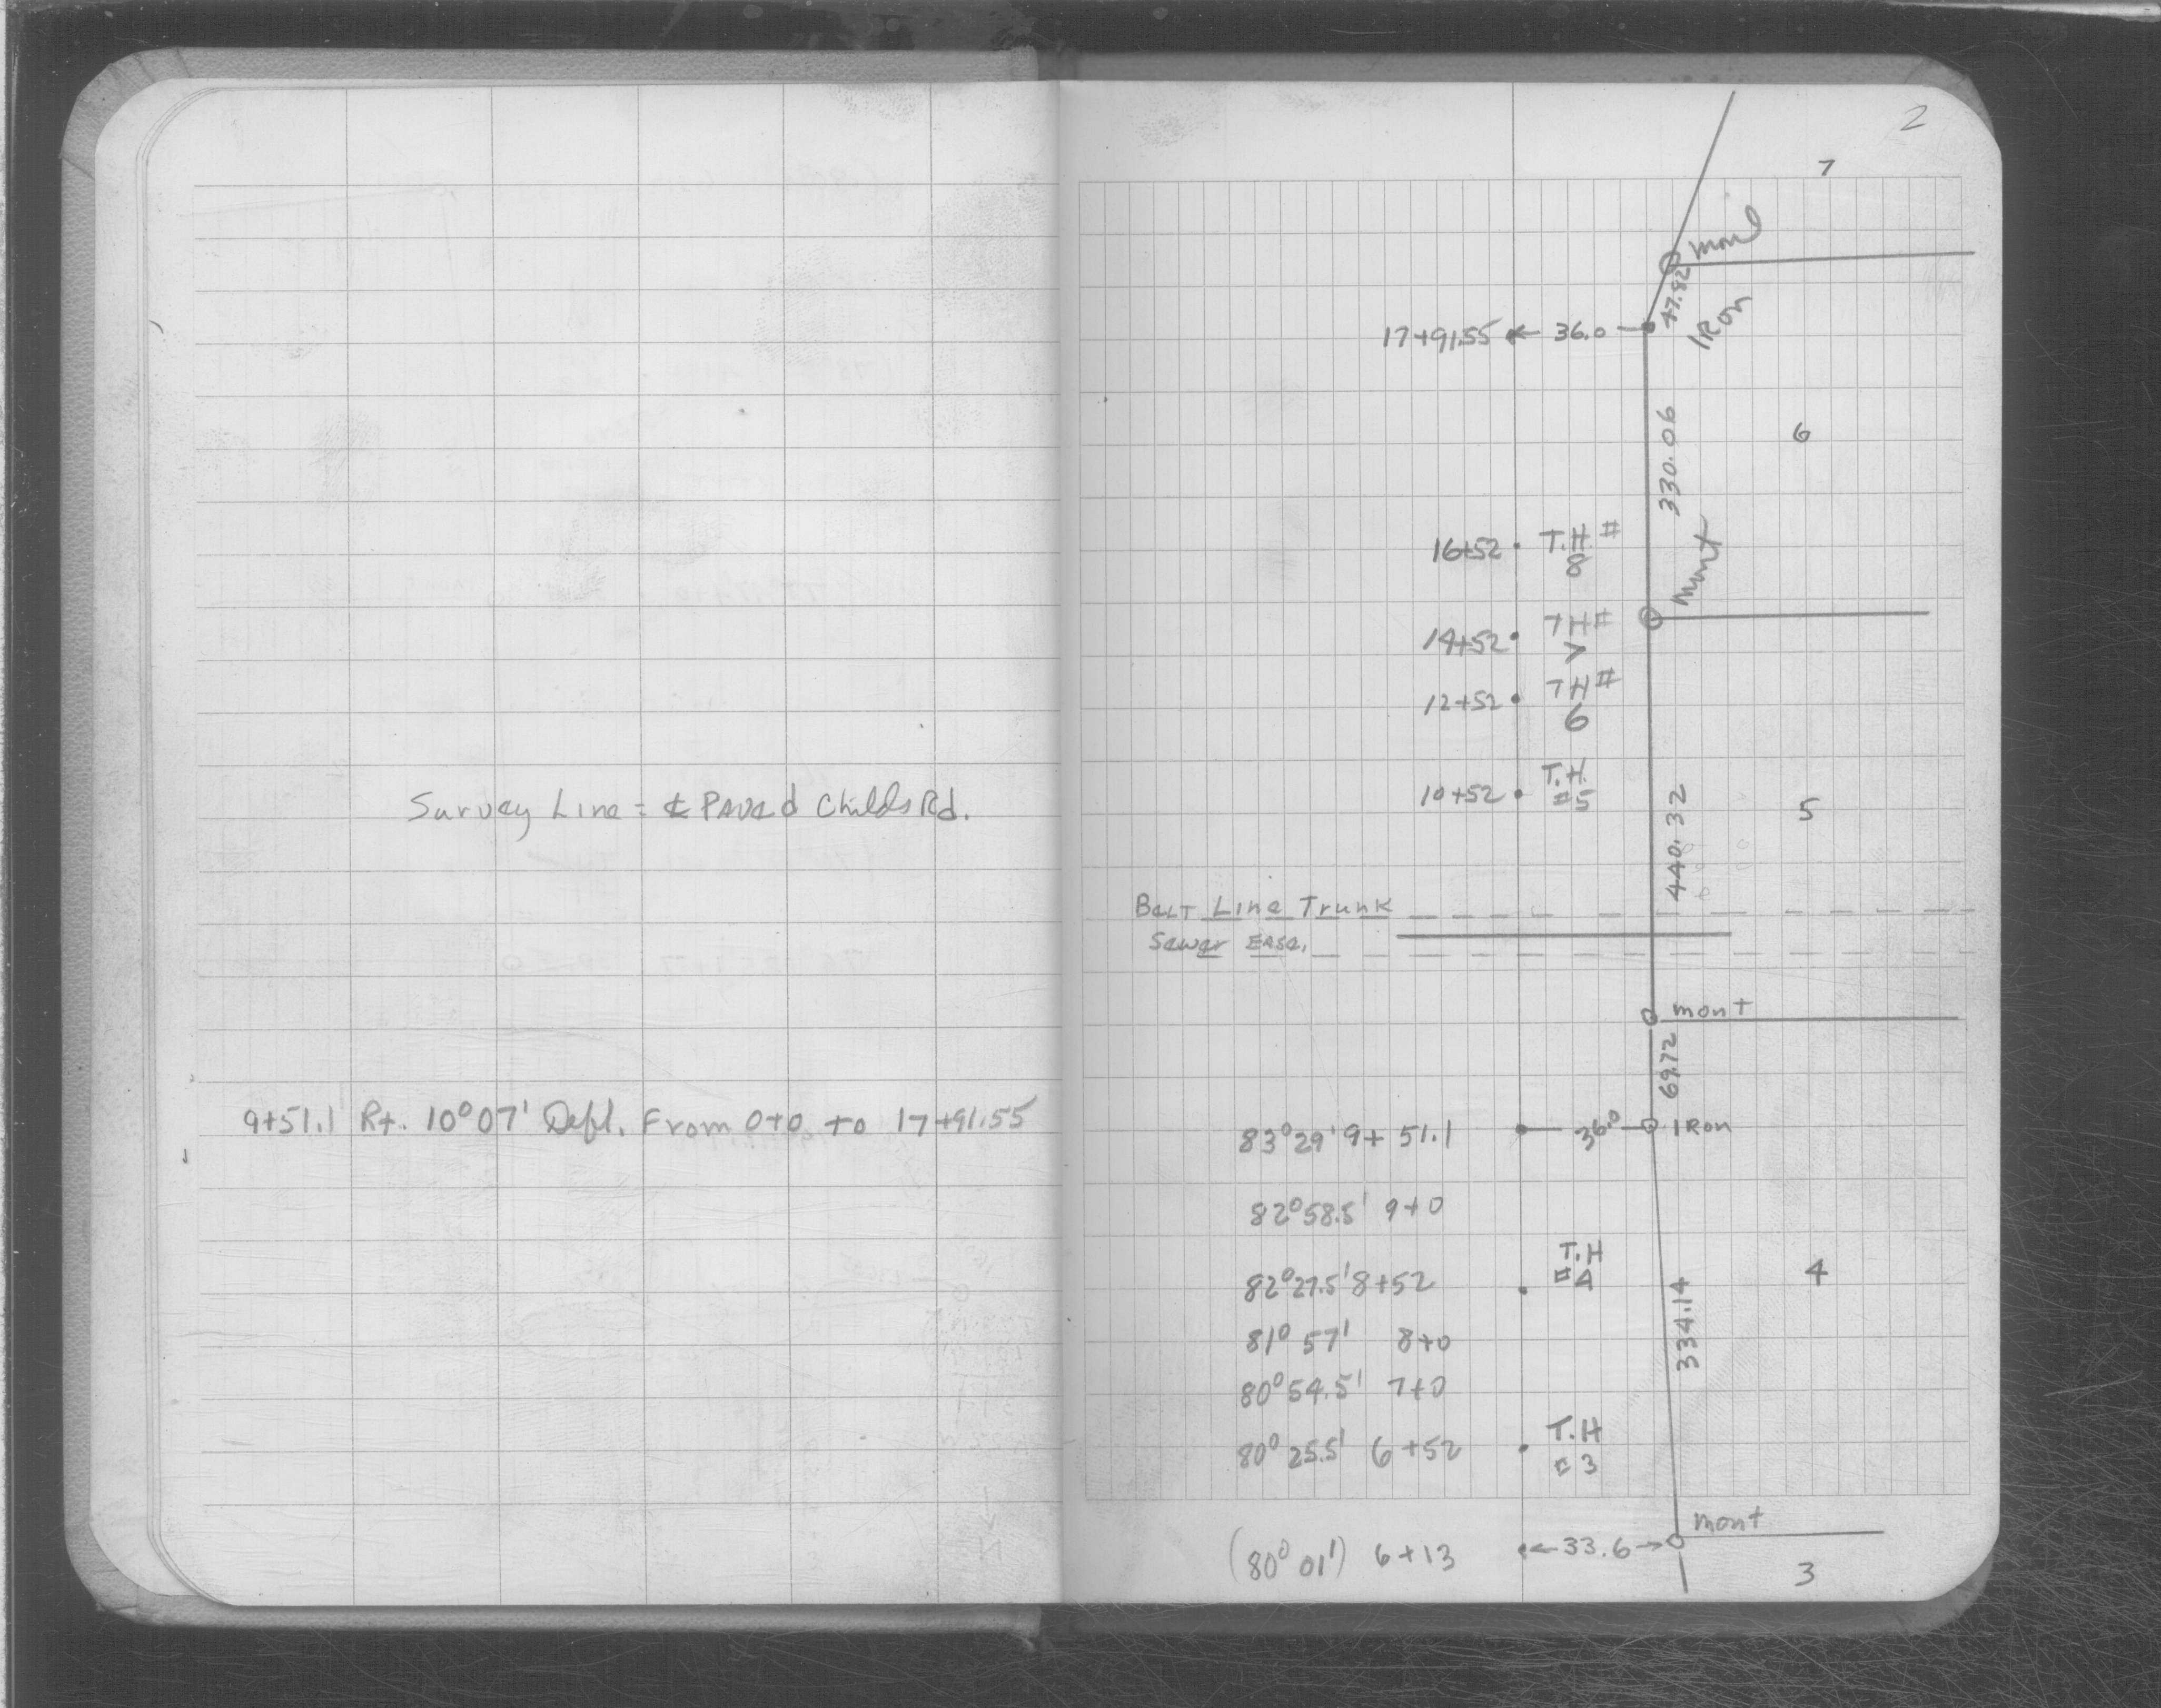 Survey Line = ℄ Paved Childs Rd.
9+51.1 Rt. 10°07' Defl. From 0+0 to 17+91.55
2
7
mon
47.82
IRon
17+91.55 ← 36.0
330.06
6
16+52 T.H. #
8
mont
14+52 TH #
7
12+52 TH #
6
10+52 T.H.
#5
440.32
5
Belt Line Trunk
Sewer Ease.
mont
69.72
83°29' 9+51.1 36.0 IRon
82°58.5' 9+0
82°27.5' 8+52 T.H
#4
4
81°57' 8+0
334.14
80°54.5' 7+0
80°25.5' 6+52 T.H
#3
mont
(80°01') 6+13 ←33.6→
3